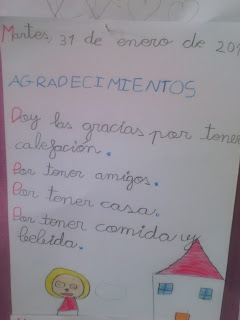 Martes, 31 de enero de 201
AGRADECIMIENTOS
Doy las gracias por tener
calefación.
Por tener amigos.
Por tener casa.
Por tener comida y
bebida.